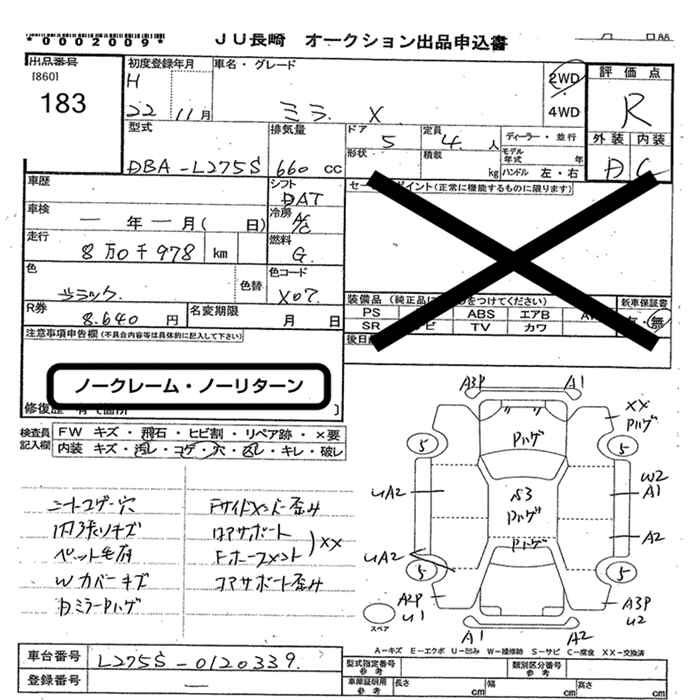 *0002009*
JU長崎 オークション出品申込書
出品番号 初度登録年月 車名・グレード 2WD 評価点
[860] H
183 22 11月 ミラ X 4WD R
型式 排気量 ドア 5 定員 4人 ディーラー・並行 外装 内装
DBA-L275S 660 cc 形状 積載 kg モデル年式 年 ハンドル 左・右 D C
車歴 シフト DAT セールスポイント(正常に機能するものに限ります)
車検 ー年ー月( 日) 冷房 A/C
走行 8万0千978 km 燃料 G
色 ブラック 色替 色コード X07 装備品(純正品に
をつけてください) 新車保証書
R券 8.640円 名変期限 月 日 PS ABS エアB
無
SR TV カワ
注意事項申告欄(不具合内容等は具体的に記入して下さい) 後日
ノークレーム・ノーリターン
修復歴
検査員記入欄 FW キズ・飛石・ヒビ割・リペア跡・×要
内装 キズ・汚レ・コゲ・穴・凶レ・キレ・破レ
シートコゲ穴 Fサイドメンバー歪み
内張リキズ コアサポート
ペット毛有 Fホースメント )XX
Wカバーキズ コアサポート歪み
Dミラーハゲ
A3P A1
XX
Pハゲ
Pハゲ
5 5
UA2 S3 W2
Pハゲ A1
Pハゲ A2
UA2
5 5
A2P A3P
U1 U2
スペア A1 A2
A-キズ E-エクボ U-凹み W-補修跡 S-サビ C-腐食 XX-交換済
車台番号 L275S-0120339 型式指定番号 参考 類別区分番号 参考
登録番号 ー 車庫証明用 参考 長さ cm 幅 cm 高さ cm